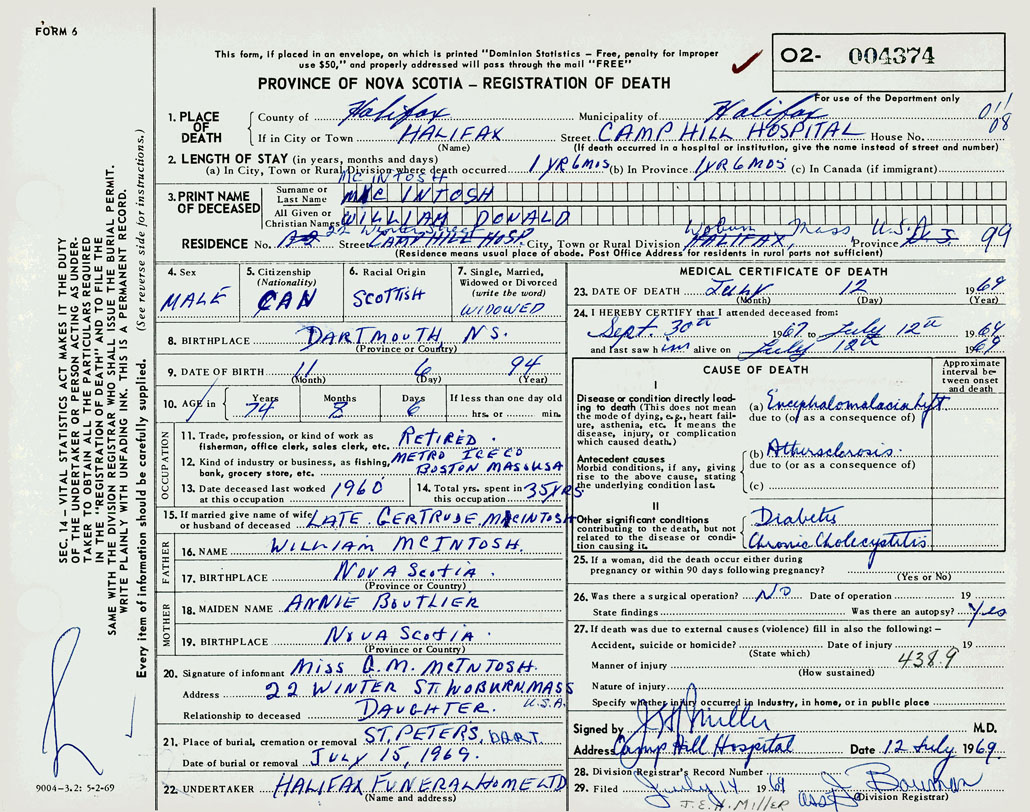 FORM 6
This form, if placed in an envelope, on which is printed "Dominion Statistics – Free, penalty for improper
use $50," and properly addressed will pass through the mail "FREE"
PROVINCE OF NOVA SCOTIA – REGISTRATION OF DEATH
02- 004374
For use of the Department only
011
08
1. PLACE OF DEATH
County of Halifax Municipality of Halifax
If in City or Town HALIFAX Street CAMP HILL HOSPITAL House No.
(Name) (If death occurred in a hospital or institution, give the name instead of street and number)
2. LENGTH OF STAY (in years, months and days)
(a) In City, Town or Rural Division where death occurred 1 YR 6 MOS (b) In Province 1 YR 6 MOS (c) In Canada (if immigrant)
MC INTOSH
3. PRINT NAME OF DECEASED
Surname or Last Name MC INTOSH
All Given or Christian Names WILLIAM DONALD
22 Winter Street Woburn Mass U.S.A.
RESIDENCE No. Street CAMP HILL HOSP. City, Town or Rural Division HALIFAX, Province N.S. 99
(Residence means usual place of abode. Post Office Address for residents in rural parts not sufficient)
4. Sex MALE
5. Citizenship (Nationality) CAN
6. Racial Origin SCOTTISH
7. Single, Married, Widowed or Divorced (write the word) WIDOWED
8. BIRTHPLACE DARTMOUTH N.S.
(Province or Country)
9. DATE OF BIRTH 11 6 94
(Month) (Day) (Year)
10. AGE in Years 74 Months 8 Days 6 If less than one day old hrs. or min.
OCCUPATION
11. Trade, profession, or kind of work as fisherman, office clerk, sales clerk, etc. RETIRED.
12. Kind of industry or business, as fishing, bank, grocery store, etc. METRO ICE CO BOSTON MASS USA
13. Date deceased last worked at this occupation 1960
14. Total yrs. spent in this occupation 35 YRS
15. If married give name of wife or husband of deceased LATE GERTRUDE MCINTOSH
FATHER
16. NAME WILLIAM MCINTOSH.
17. BIRTHPLACE NOVA SCOTIA.
(Province or Country)
MOTHER
18. MAIDEN NAME ANNIE BOUTLIER
19. BIRTHPLACE NOVA SCOTIA.
(Province or Country)
20. Signature of informant MISS G.M. MCINTOSH.
Address 22 WINTER ST. WOBURN MASS U.S.A.
Relationship to deceased DAUGHTER.
21. Place of burial, cremation or removal ST. PETERS, DART.
Date of burial or removal JULY 15, 1969.
22. UNDERTAKER HALIFAX FUNERAL HOME LTD
(Name and address)
MEDICAL CERTIFICATE OF DEATH
23. DATE OF DEATH July 12 1969
(Month) (Day) (Year)
24. I HEREBY CERTIFY that I attended deceased from:
Sept. 30th 1967 to July 12th 1969
and last saw him alive on July 12th 1969
CAUSE OF DEATH
Approximate interval between onset and death
I
Disease or condition directly leading to death (This does not mean the mode of dying, e.g., heart failure, asthenia, etc. It means the disease, injury, or complication which caused death.)
(a) Encephalomalacia
due to (or as a consequence of)
Antecedent causes
Morbid conditions, if any, giving rise to the above cause, stating the underlying condition last.
(b) Atherosclerosis.
due to (or as a consequence of)
(c)
II
Other significant conditions contributing to the death, but not related to the disease or condition causing it.
Diabetis
Chronic Cholecystitis
25. If a woman, did the death occur either during pregnancy or within 90 days following pregnancy?
(Yes or No)
26. Was there a surgical operation? NO Date of operation 19
State findings Was there an autopsy? Yes
27. If death was due to external causes (violence) fill in also the following: –
Accident, suicide or homicide? Date of injury 19
(State which) 438.9
Manner of injury
(How sustained)
Nature of injury
Specify whether injury occurred in Industry, in home, or in public place
Signed by J H Miller M.D.
Address Camp Hill Hospital Date 12 July 1969.
28. Division Registrar's Record Number
29. Filed July 14 1969 J. Bowman
(Division Registrar)
J.E.H. MILLER
SEC. 14 – VITAL STATISTICS ACT MAKES IT THE DUTY
OF THE UNDERTAKER OR PERSON ACTING AS UNDER-
TAKER TO OBTAIN ALL THE PARTICULARS REQUIRED
IN THE "REGISTRATION OF DEATH" AND TO FILE THE
SAME WITH THE DIVISION REGISTRAR WHO SHALL ISSUE THE BURIAL PERMIT.
WRITE PLAINLY WITH UNFADING INK. THIS IS A PERMANENT RECORD.
Every item of information should be carefully supplied. (See reverse side for instructions.)
9004-3.2: 5-2-69